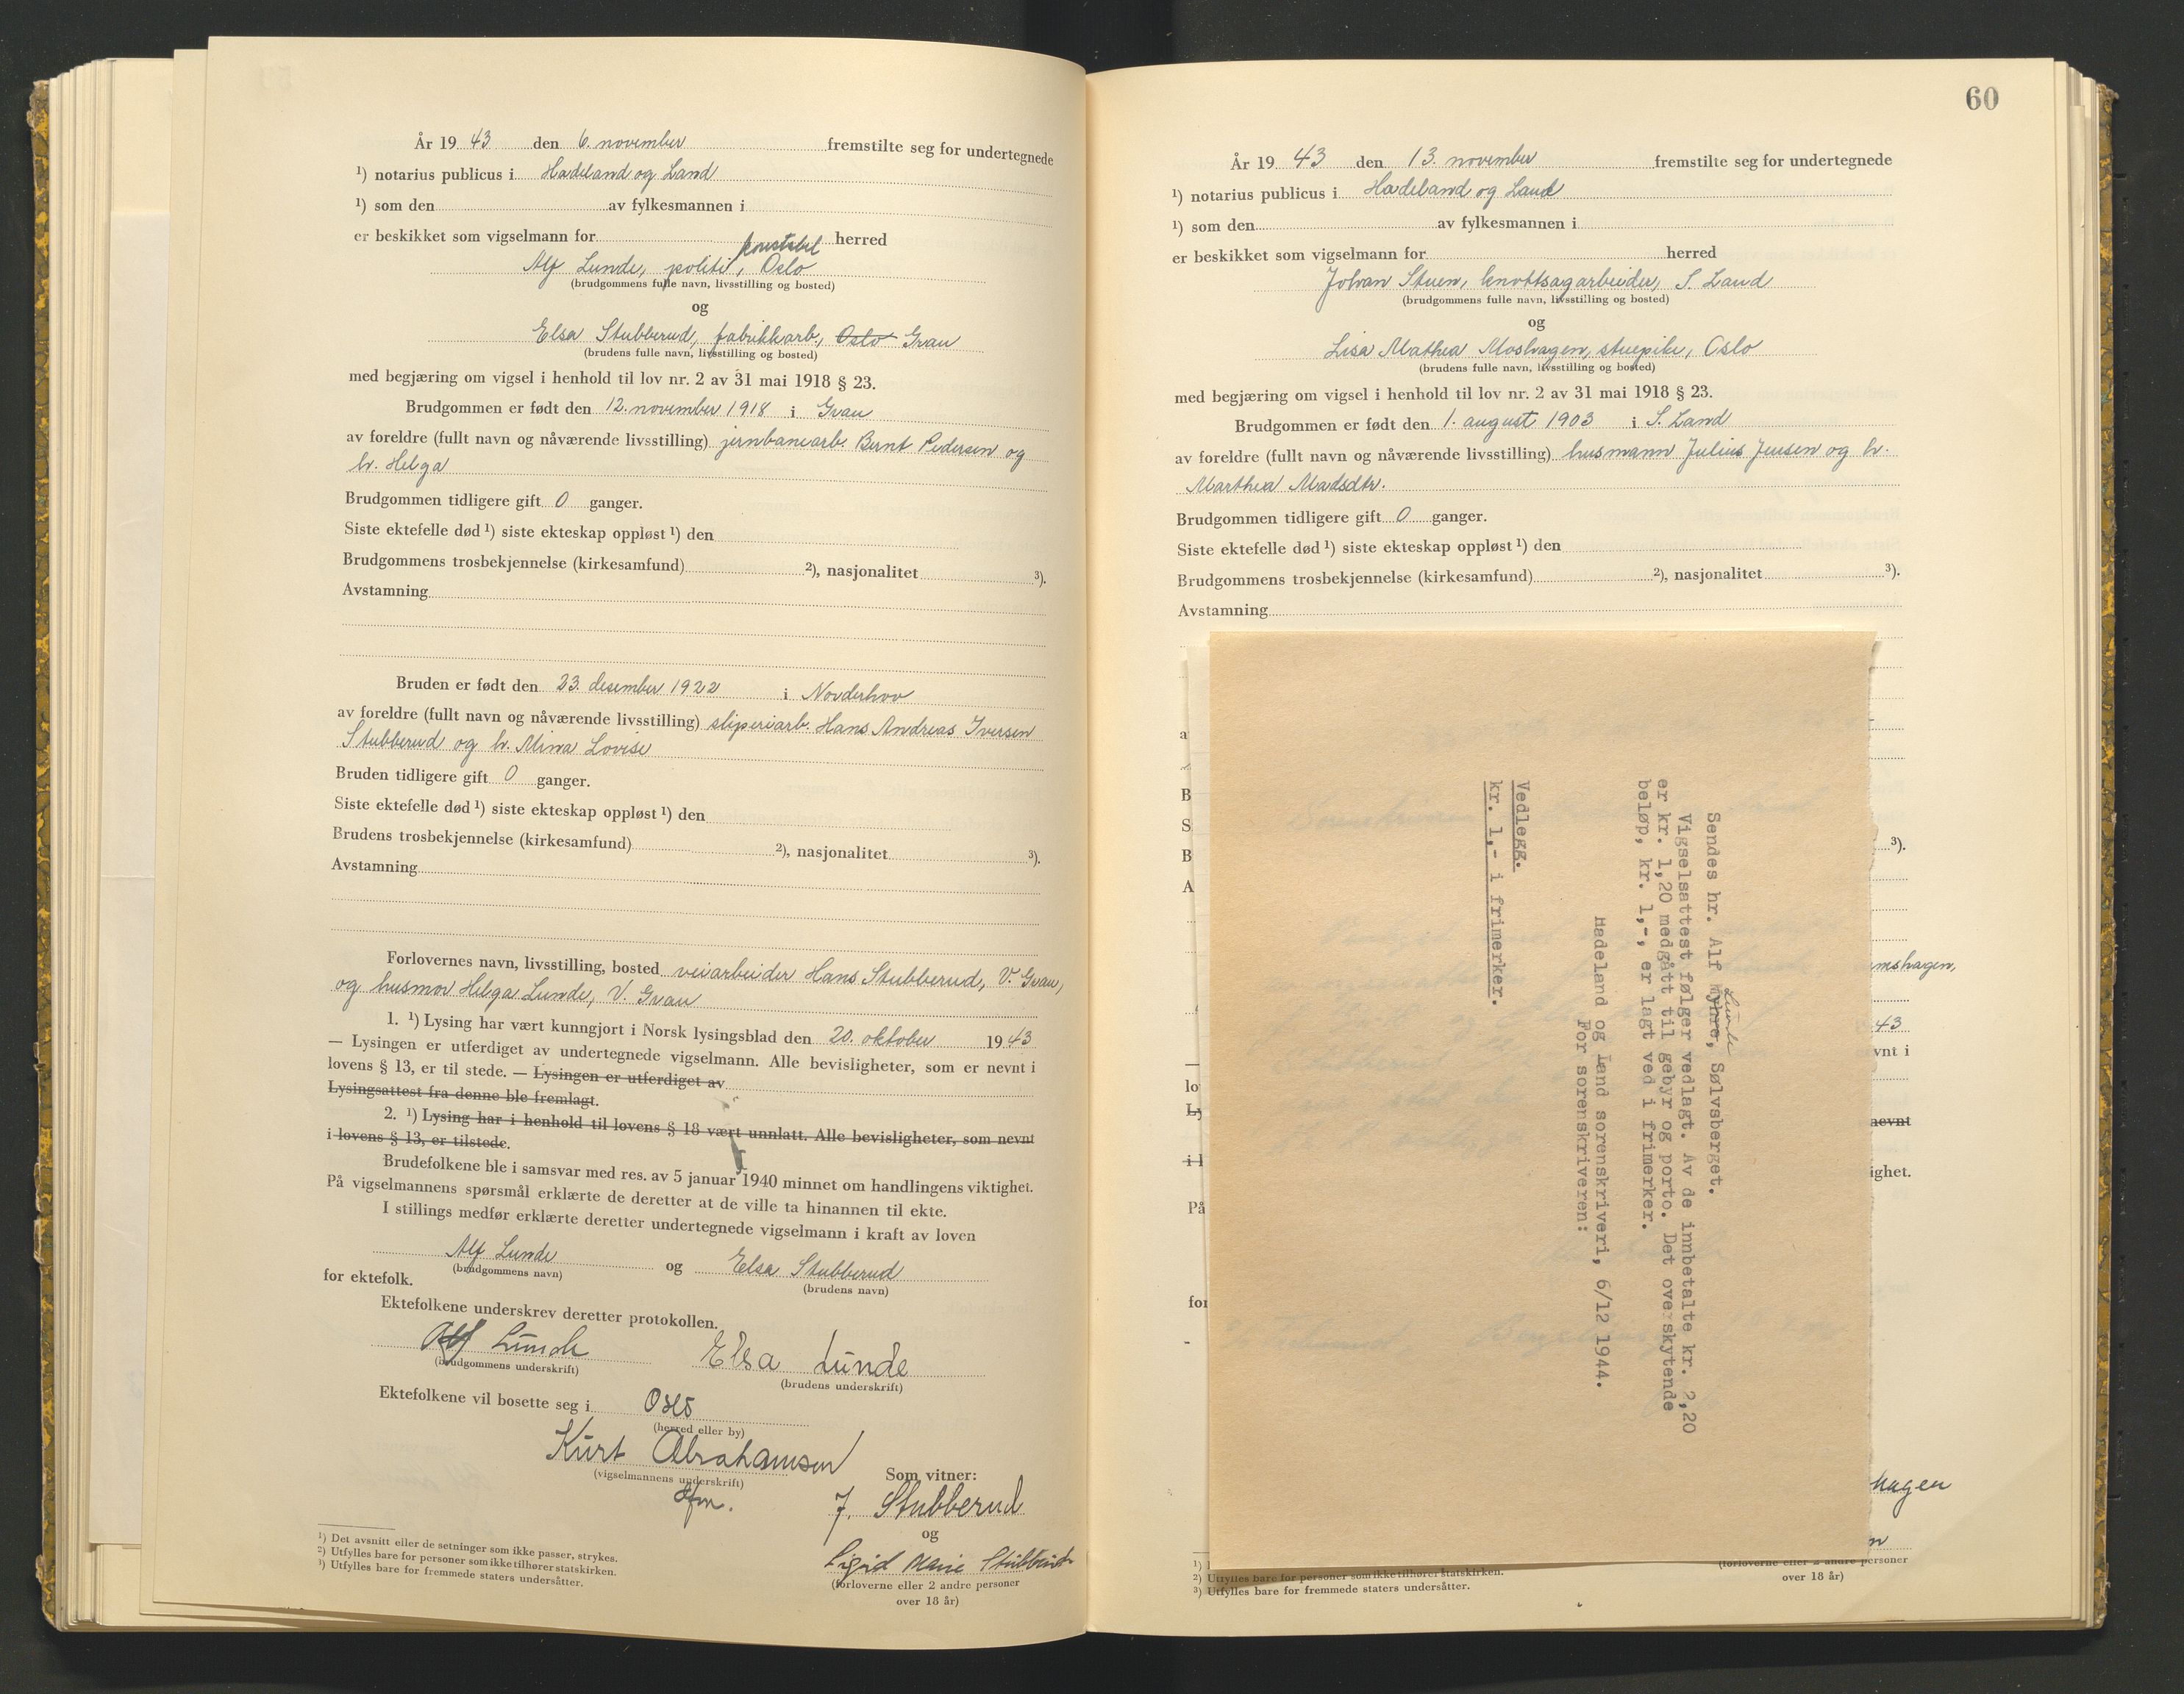 År 19 43 den 6. november fremstilte seg for undertegnede
¹) notarius publicus i Hadeland og Land
¹) som den av fylkesmannen i
er beskikket som vigselmann for herred
konstabel
Alf Lunde, politi, Oslo
(brudgommens fulle navn, livsstilling og bosted)
og
Elsa Stubberud, fabrikkarb., Oslo Gran
(brudens fulle navn, livsstilling og bosted)
med begjæring om vigsel i henhold til lov nr. 2 av 31 mai 1918 § 23.
Brudgommen er født den 12. november 1918 i Gran
av foreldre (fullt navn og nåværende livsstilling) jernbanearb. Bernt Pedersen og
h. Helga
Brudgommen tidligere gift 0 ganger.
Siste ektefelle død ¹) siste ekteskap oppløst ¹) den
Brudgommens trosbekjennelse (kirkesamfund) ²), nasjonalitet ³).
Avstamning
Bruden er født den 23. desember 1922 i Norderhov
av foreldre (fullt navn og nåværende livsstilling) sliperiarb. Hans Andreas Iversen
Stubberud og h. Mina Lovise
Bruden tidligere gift 0 ganger.
Siste ektefelle død ¹) siste ekteskap oppløst ¹) den
Brudens trosbekjennelse (kirkesamfund) ²), nasjonalitet ³).
Avstamning
Forlovernes navn, livsstilling, bosted veiarbeider Hans Stubberud, V. Gran,
og husmor Helga Lunde, V. Gran
1. ¹) Lysing har vært kunngjort i Norsk lysingsblad den 20. oktober 19 43
— Lysingen er utferdiget av undertegnede vigselmann. Alle bevisligheter, som er nevnt i
lovens § 13, er til stede. — Lysingen er utferdiget av
Lysingsattest fra denne ble fremlagt.
2. ¹) Lysing har i henhold til lovens § 18 vært unnlatt. Alle bevisligheter, som nevnt
i lovens § 13, er tilstede.
Brudefolkene ble i samsvar med res. av 5 januar 1940 minnet om handlingens viktighet.
På vigselmannens spørsmål erklærte de deretter at de ville ta hinannen til ekte.
I stillings medfør erklærte deretter undertegnede vigselmann i kraft av loven
Alf Lunde og Elsa Stubberud
(brudgommens navn) (brudens navn)
for ektefolk.
Ektefolkene underskrev deretter protokollen.
Alf Lunde Elsa Lunde
(brudgommens underskrift) (brudens underskrift)
Ektefolkene vil bosette seg i Oslo
(herred eller by)
Kurt Abrahamsen
(vigselmannens underskrift)
Som vitner:
J. Stubberud
og
Sigrid Marie Stubberud
(forloverne eller 2 andre personer
over 18 år)
¹) Det avsnitt eller de setninger som ikke passer, strykes.
²) Utfylles bare for personer som ikke tilhører statskirken.
³) Utfylles bare for fremmede staters undersåtter.
60
År 19 43 den 13. november fremstilte seg for undertegnede
¹) notarius publicus i Hadeland og Land
¹) som den av fylkesmannen i
er beskikket som vigselmann for herred
Johan Stuen, knottsagarbeider, S. Land
(brudgommens fulle navn, livsstilling og bosted)
og
Lisa Mathea Moshagen, stuepike, Oslo
(brudens fulle navn, livsstilling og bosted)
med begjæring om vigsel i henhold til lov nr. 2 av 31 mai 1918 § 23.
Brudgommen er født den 1. august 1903 i S. Land
av foreldre (fullt navn og nåværende livsstilling) husmann Julius Jensen og h.
Marthea Madsdtr.
Brudgommen tidligere gift 0 ganger.
Siste ektefelle død ¹) siste ekteskap oppløst ¹) den
Brudgommens trosbekjennelse (kirkesamfund) ²), nasjonalitet ³).
Avstamning
Sendes hr. Alf Myhre, Sølvsberget.
Lunde
Vigselsattest følger vedlagt. Av de innbetalte kr. 2,20
er kr. 1,20 medgått til gebyr og porto. Det overskytende
beløp, kr. 1,-, er lagt ved i frimerker.
Hadeland og Land sorenskriveri, 6/12 1944.
For sorenskriveren:
Vedlegg.
kr. 1,- i frimerker.
a
B
S
B ³).
A
mshagen,
43
vnt i
lo
Ly
nevnt
i l
ighet.
På
for
hagen
n
(forloverne eller 2 andre personer
over 18 år)
¹)
²) Utfylles bare for personer som ikke tilhører statskirken.
³) Utfylles bare for fremmede staters undersåtter.